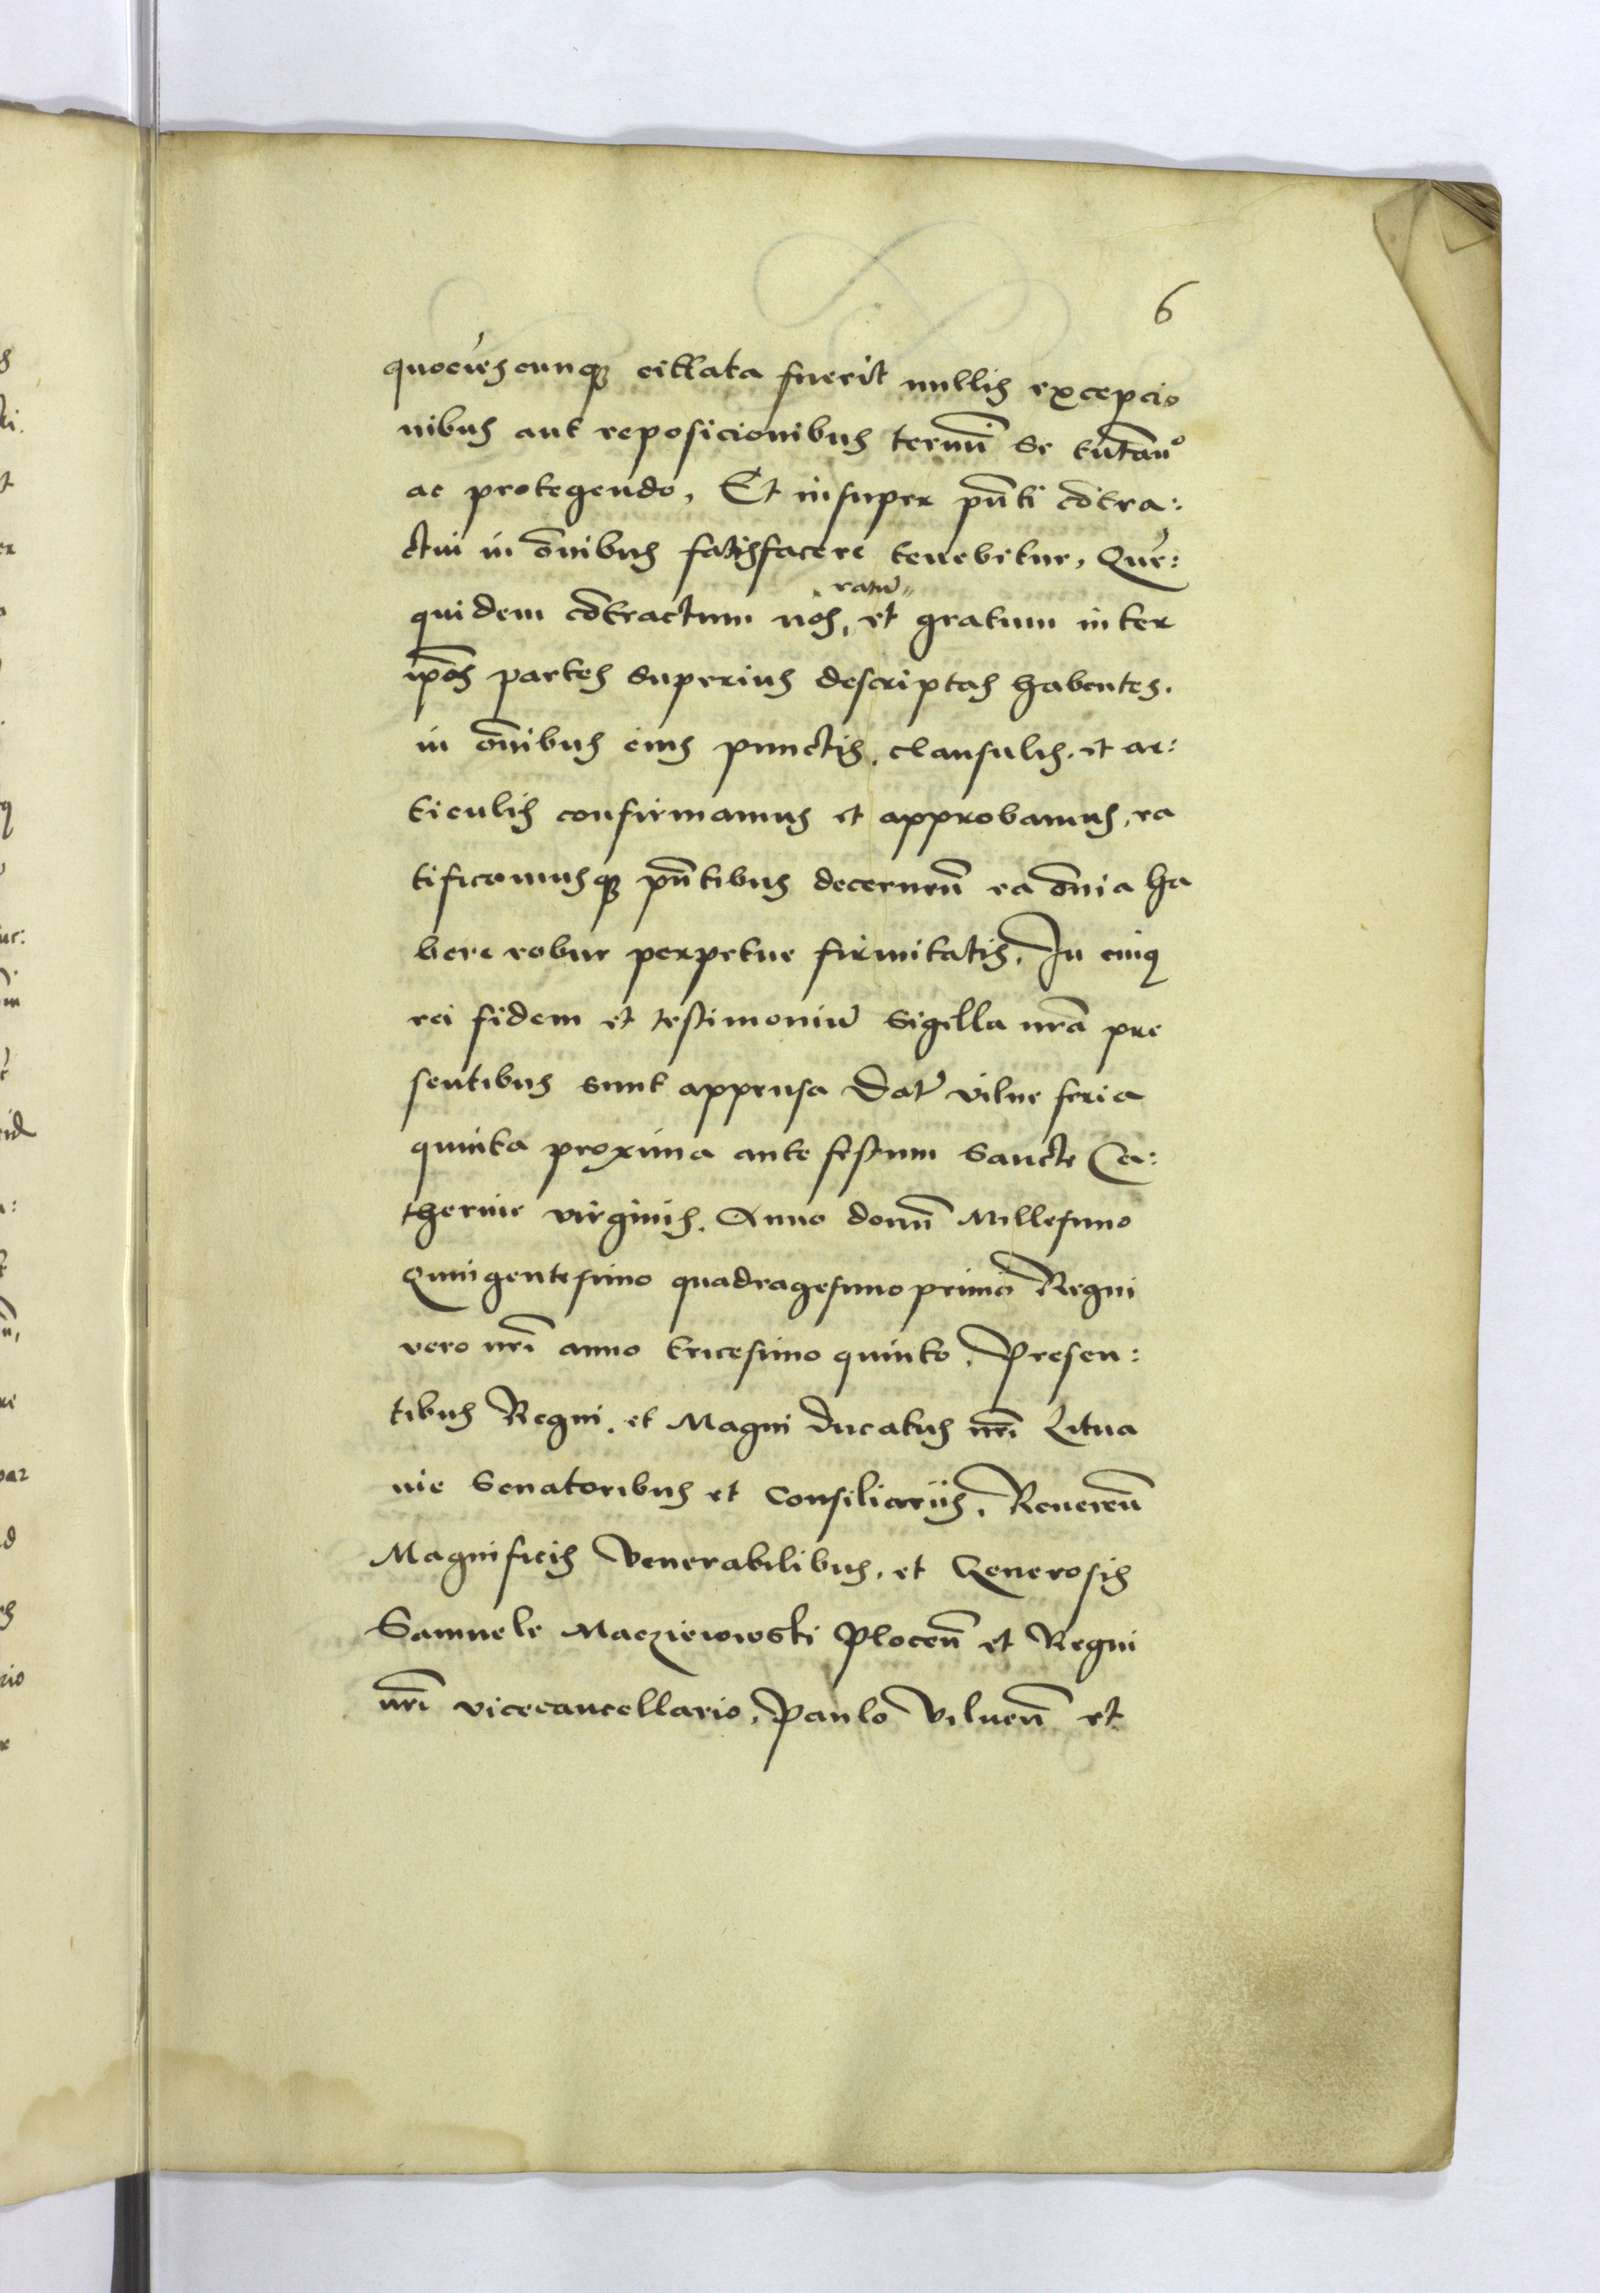 6
quociescunq cittata fuerit nullis excepcio
nibus aut reposicionibus termi se tutan°
ac protegendo, Et insuper pnti contra:
ctui in omibus satisfacere tenebitur, Que:
ratu
quidem contractum nos, et gratum inter
ipos partes superius descriptas habentes.
in omibus eius punctis, clausulis, et ar:
ticulis confirmamus et approbamus, ra
tificamusq pntibus decernen ea omia ha
bere robur perpetue firmitatis, In cuiq
rei fidem et testimoniu sigilla nra pre
sentibus sunt appensa Dat vilne feria
quinta proxima ante festum Sancte Ca:
therine virginis. Anno domi Millesimo
Quingentesimo quadragesimo primo Regni
vero nri anno tricesimo quinto, Presen:
tibus Regni, et Magni Ducatus nri Litua
nie Senatoribus et Consiliariis, Reveren
Magnificis Venerabilibus, et Generosis
Samuele Macziewowski Plocen et Regni
nri vicecancellario, Paulo Vilnen et